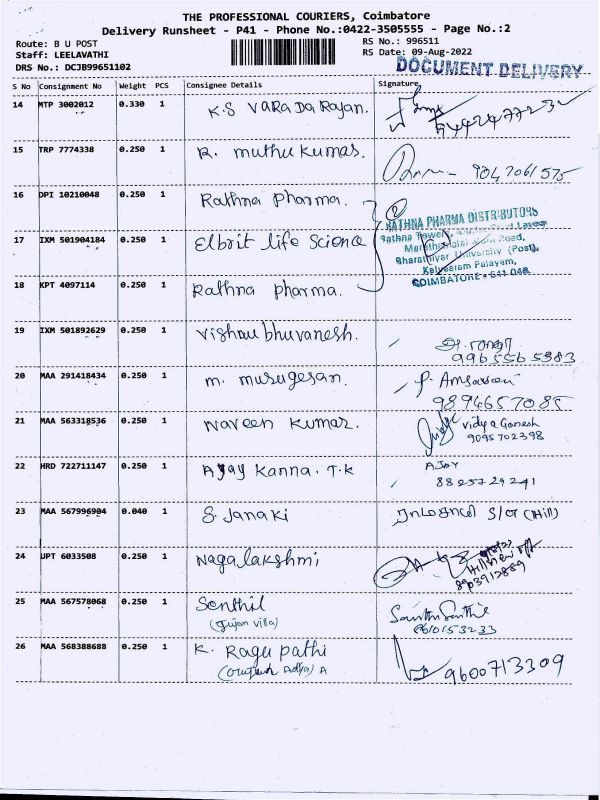 THE PROFESSIONAL COURIERS, Coimbatore
Delivery Runsheet - P41 - Phone No.:0422-3505555 - Page No.:2
Route: B U POST
RS No.: 996511
Staff: LEELAVATHI
RS Date: 09-Aug-2022
DRS No.: DCJB99651102
DOCUMENT DELIVERY
S No Consignment No Weight PCS Consignee Details Signature
14 MTP 3002012 0.330 1 K.S Varadarajan.
15 TRP 7774338 0.250 1 R. muthu kumar. 9047061575
16 DPI 10210048 0.250 1 Rathna pharma.
RATHNA PHARMA DISTRIBUTORS
Rathna Tower,
Road,
Bharathiyar University (Post),
Kalveeram Palayam,
COIMBATORE - 641 046.
17 IXM 501904184 0.250 1 Elbrit life Science
18 KPT 4097114 0.250 1 Rathna pharma.
19 IXM 501892629 0.250 1 Vishnu bhuvanesh.
9965565383
20 MAA 291418434 0.250 1 m. murugesan.
9894657085
21 MAA 563318536 0.250 1 Naveen Kumar. Vidya Ganesh
9095702398
22 HRD 722711147 0.250 1 Ajay Kanna. T.K AJAY
8825729241
23 MAA 567996904 0.040 1 S. Janaki S/O (Hill)
24 UPT 6033508 0.250 1 Nagalakshmi
8903912889
25 MAA 567578068 0.250 1 Senthil
26 MAA 568388688 0.250 1 K. Ragu pathi 9600713309